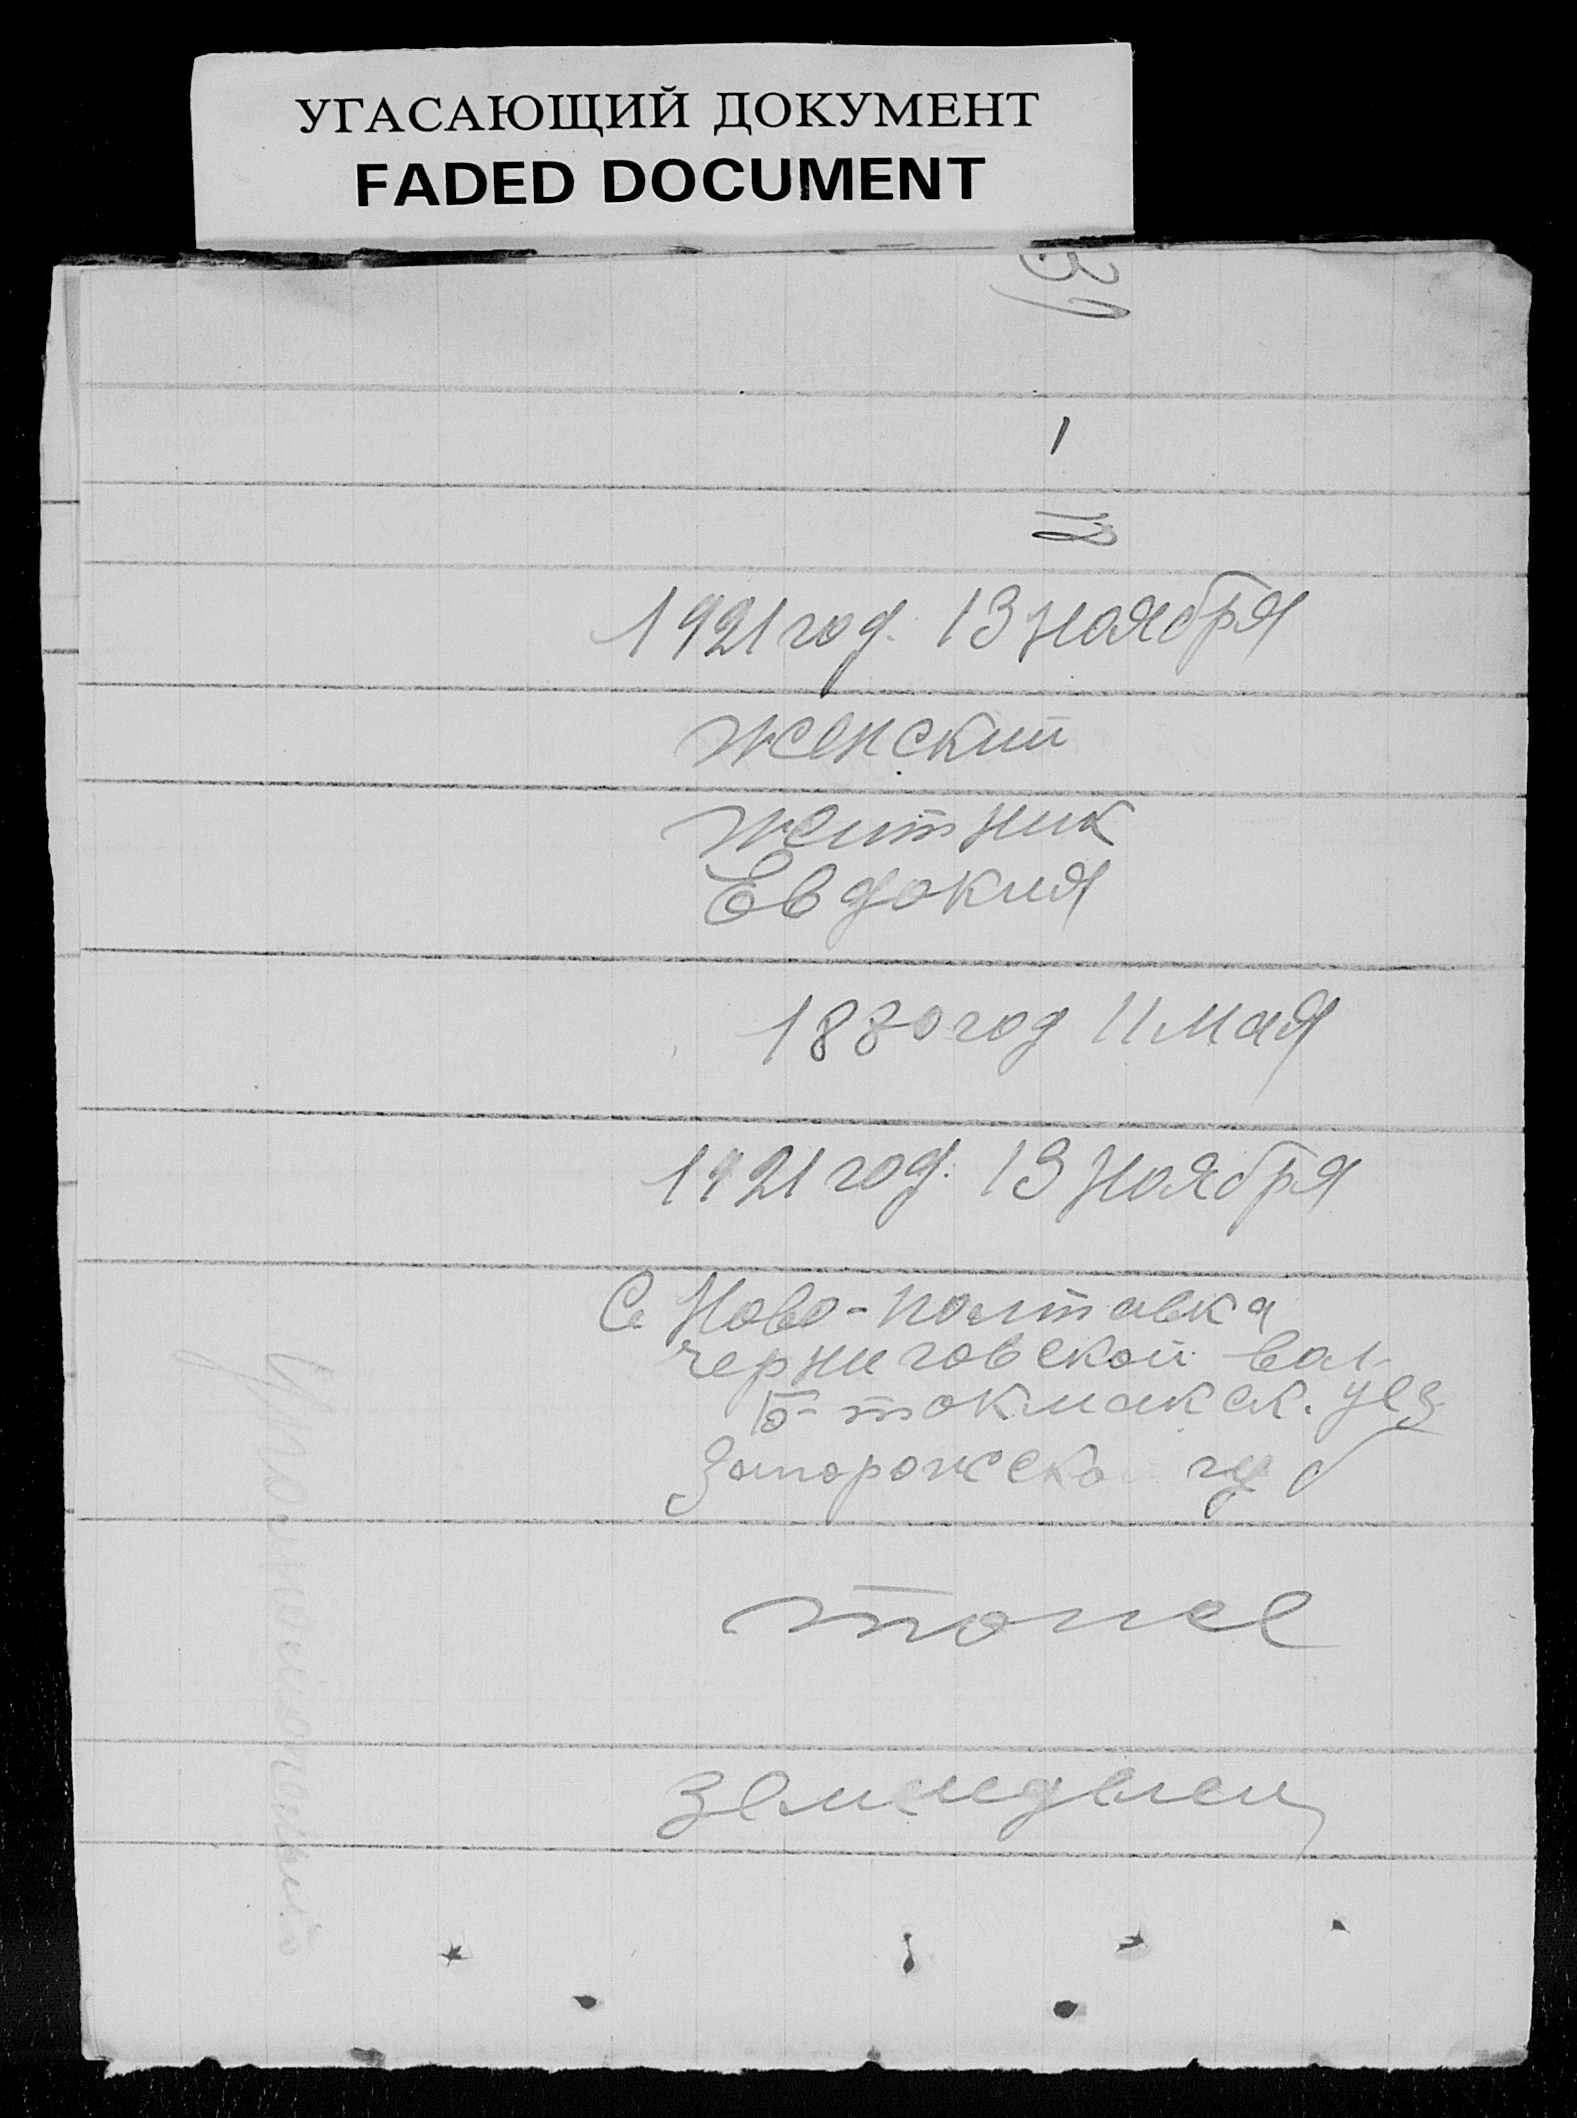 УГАСАЮЩИЙ ДОКУМЕНТ
FADED DOCUMENT
39
1
12
1921 год. 13 ноября
женский
житник
Евдокия
1880 год 11 мая
1921 год. 13 ноября
С Ново-полтавка
черниговской вол
Б-токмакск. уез
Запорожско губ
тоже
земледелец